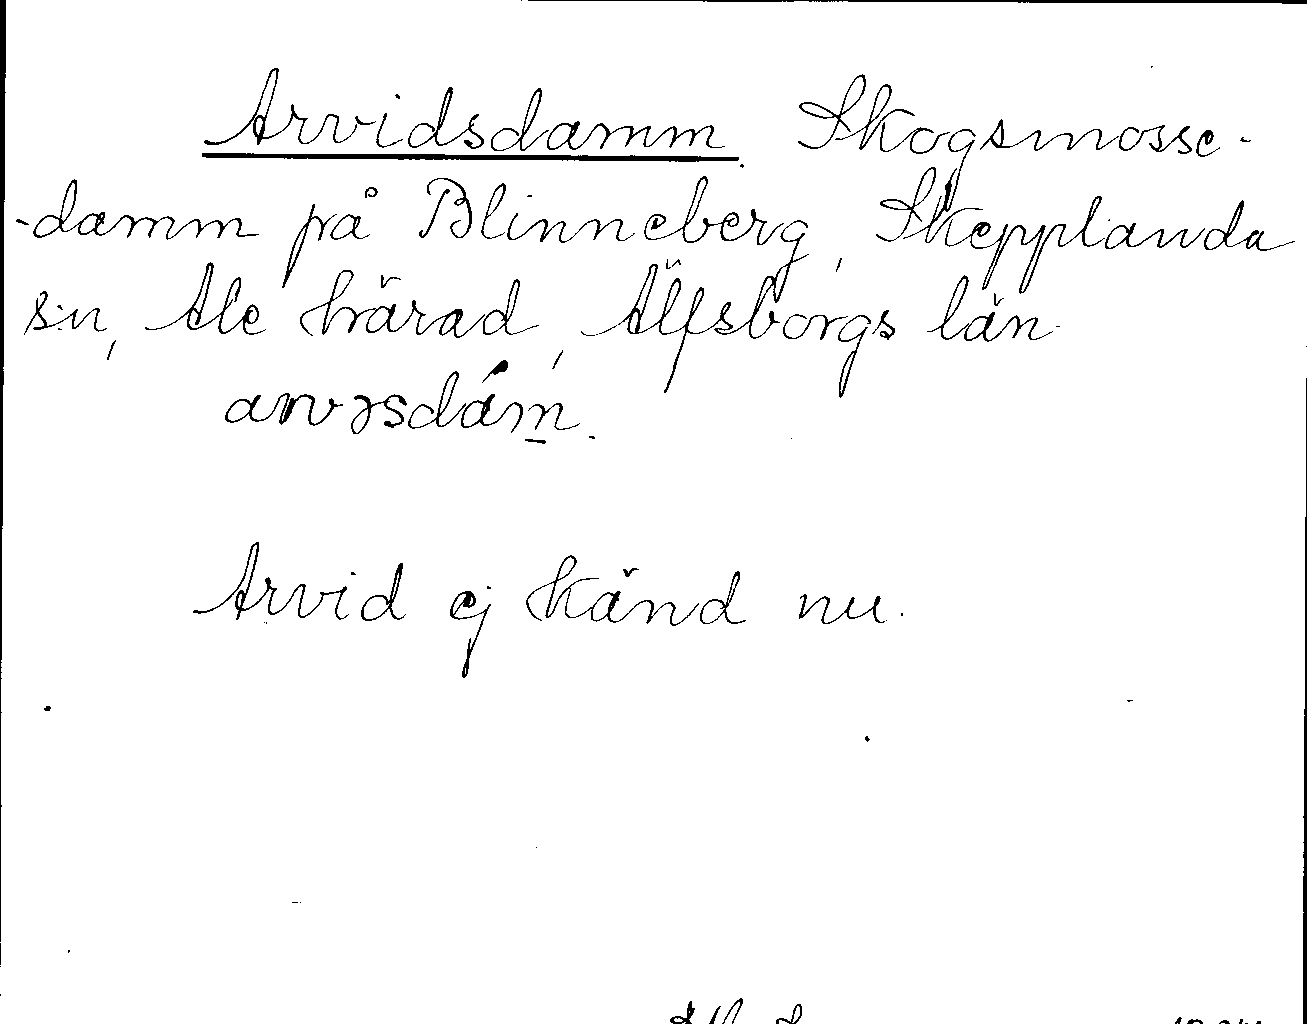 Arvidsdamm. Skogsmosse-
-damm på Blinneberg, Skepplanda
sn, Ale härad, Älfsborgs län.
arvəsdám̲.
Arvid ej känd nu.